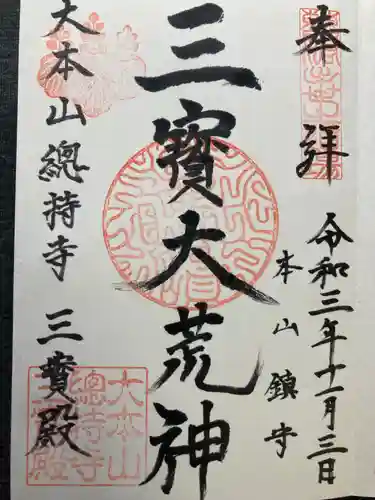 奉拝
令和三年十一月三日
本山鎮寺
三寳大荒神
大本山總持寺 三寳殿
大本山
總持寺
三寳殿